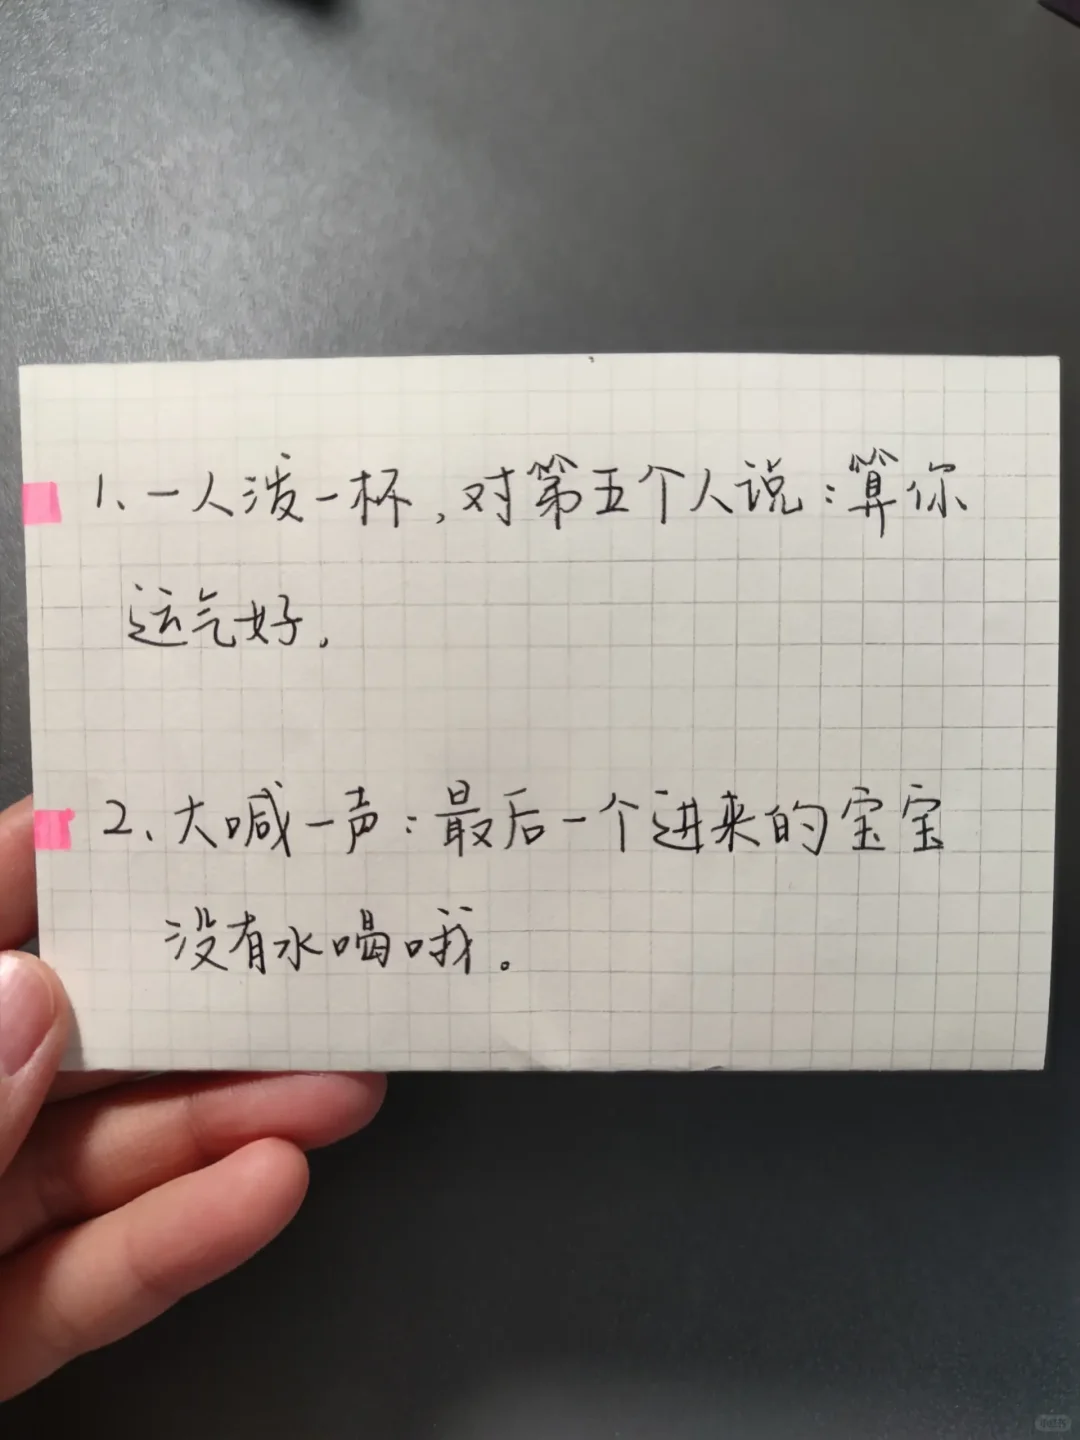 1、一人泼一杯，对第五个人说：算你
运气好.
2、大喊一声：最后一个进来的宝宝
没有水喝哦。
小红书